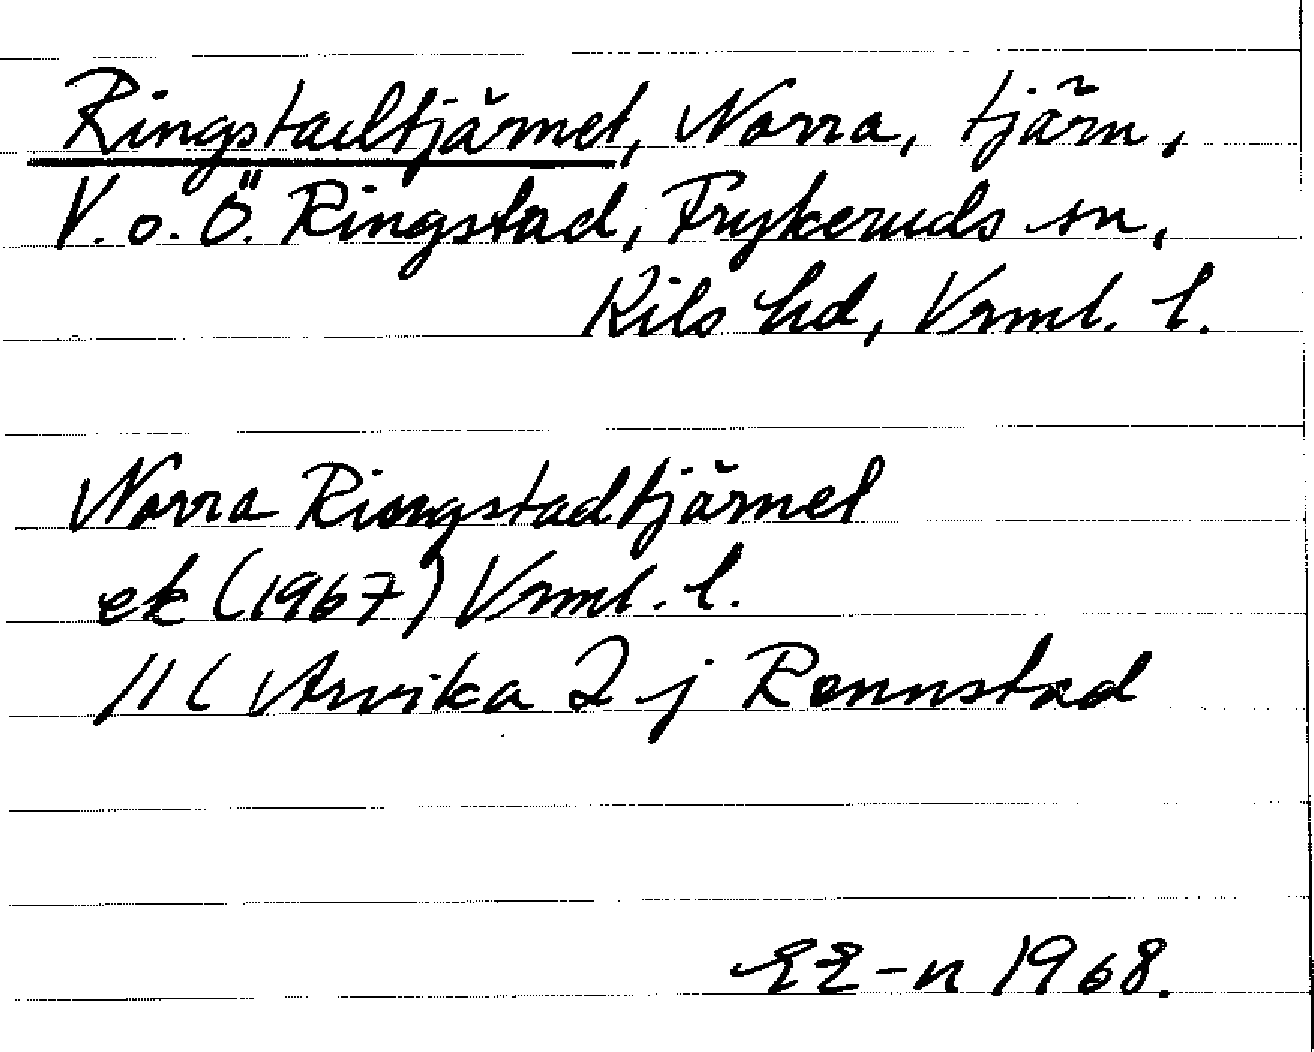 Ringstadtjärnet, Norra, tjärn,
V. o. Ö. Ringstad, Frykeruds sn,
Kils hd, Vrml. l.
Norra Ringstadtjärnet
ek (1967) Vrml. l.
11C Arvika 2 j Rennstad
EE-n 1968.